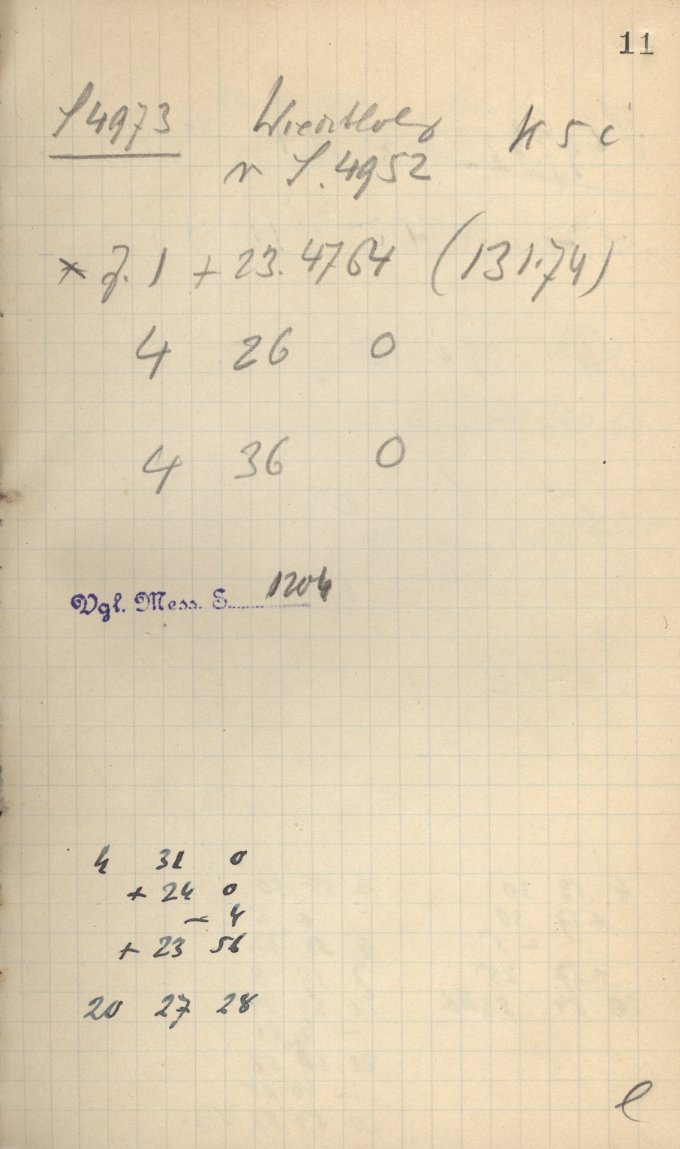 11
S 4973 K 5 c
S. 4952
× Z. 1 + 23.4764 (131.74)
4 26 0
4 36 0
Vgl. Mess. S. 1204
4 31 0
+ 24 0
- 4
+ 23 56
20 27 28
e